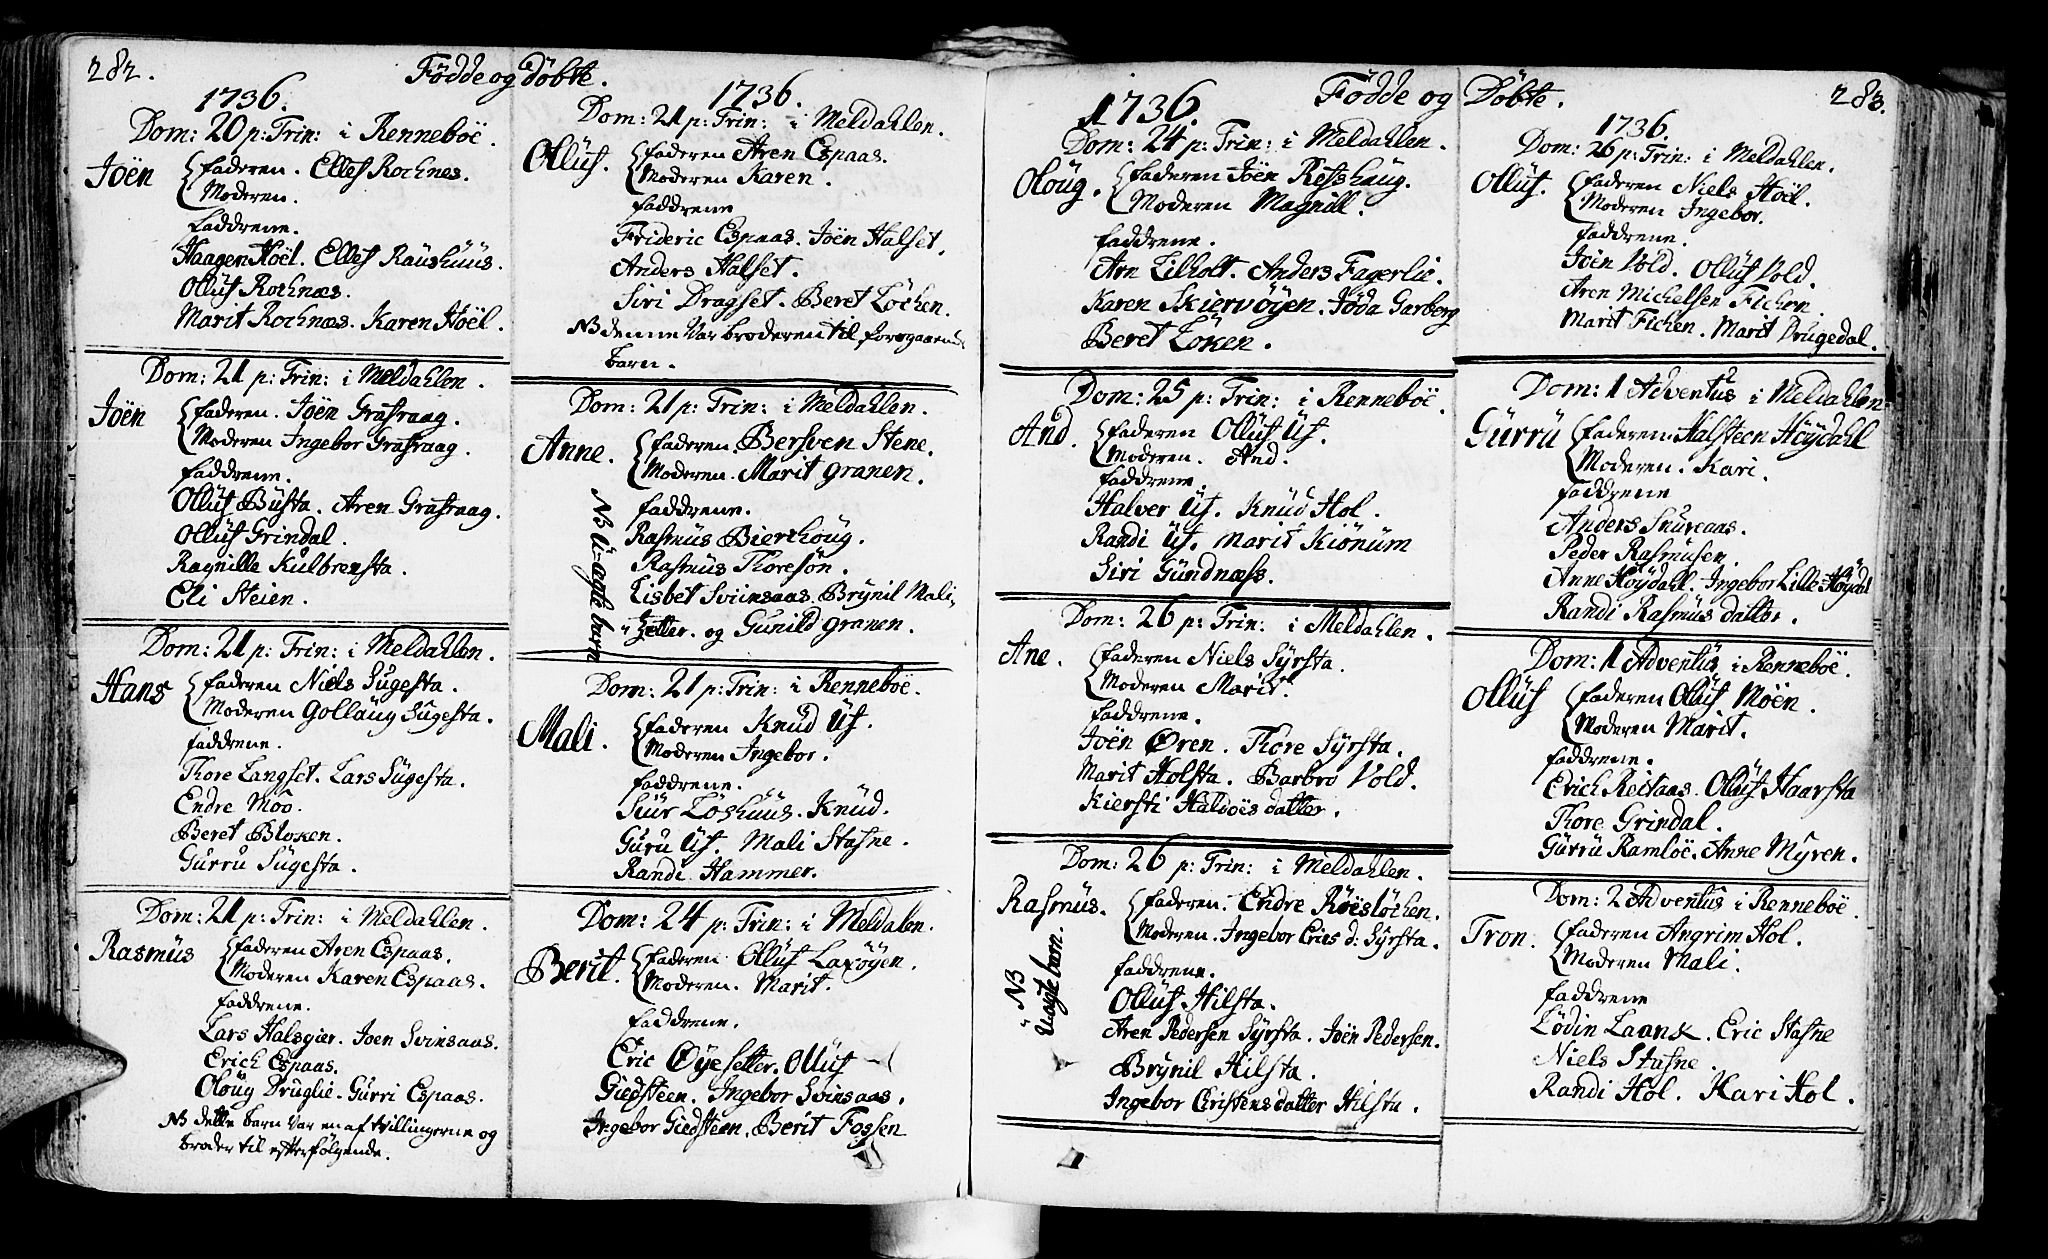 282.
Fødde og døbte.
1736.
Dom: 20 p: Trin: i Renneboe.
Joën
faderen. Ellef Rochnes.
Moderen.
faddrene.
Haagen Hoël. Ellef Raushuus.
Olluf Rochnæs.
Marit Rochnæs. Karen Hoël.
Dom: 21 p: Trin: i Meldahlen.
Joën
faderen. Joën Grafraag.
Moderen Ingebor Grafraag.
faddrene.
Olluf Busta. Aren Grafraag.
Olluf Grindal.
Ragnille Kulbrensta.
Eli Steien.
Dom: 21 p: Trin: i Meldahlen.
Hans
faderen Niels Sugesta.
Moderen Gollaug Sugesta.
faddrene.
Thore Langset. Lars Sügesta.
Endre Moo.
Beret Bloken.
Gurru Sügesta.
Dom: 21 p: Trin: i Meldahlen.
Rasmus
faderen Aren Espaas.
Moderen Karen Espaas.
faddrene.
Lars Halsgier. Joen Svinsaas.
Erich Espaas.
Oloug Druglie. Gürri Espaas.
NB dette barn var en af tvillingerne og
broder til efterfølgende.
1736.
Dom: 21 p: Trin: i Meldahlen.
Olluf.
faderen Aren Espaas.
Moderen Karen.
faddrene
Frideric Espaas. Joën Halset.
Anders Halset.
Siri Dragset. Beret Löchen.
NB denne var broderen til foregaaende
barn.
Dom: 21 p: Trin: i Meldahlen.
Anne.
faderen. Bersven Stene.
Moderen. Marit granen.
NB U-ægte barn
faddrene.
Rasmus Bierchoug.
Rasmus Thoresön.
Lisbet Sviinsaas. Brynil Mali-
zetter. og Gunild granen.
Dom: 21 p: Trin: i Renneboe.
Mali.
faderen Knud Uf.
Moderen Ingebor.
faddrene.
Siur Loshuus. Knud.
Guru Uf. Mali Stafne.
Randi Hammer.
Dom: 24 p: Trin: i Meldalen.
Berit.
faderen Olluf Laxøyen.
Moderen. Marit.
faddrene.
Eric Øyesetter. Olluf
Giedsteen. Ingebor Svinsaas.
Ingebor Giedsteen. Berit Fossen
Fødde og Døbte.
283.
1736.
Dom: 24 p: Trin: i Meldahlen.
Oloug.
faderen Joën Resshaug.
Moderen Magnill.
faddrene.
Arn Lilholt. Anders Fagerlie.
Karen Skiervøyen. Joda Garberg
Beret Löken.
Dom: 25 p: Trin: i Renneboë.
And.
faderen Olluf Uf.
Moderen. And.
faddrene.
Halver Uf. Knud Hol.
Randi Uf. Marit Kiönum
Siri Gundnæss.
Dom: 26 p: Trin: i Meldahlen.
Ane.
faderen Niels Syrsta.
Moderen Marit.
faddrene.
Joën Øren. Thore Syrsta.
Marit Holsta. Barbro Vold.
Kiersti Haldoësdatter.
Dom: 26 p: Trin: i Meldahlen.
Rasmus.
faderen. Endre Röeslöchen.
Moderen. Ingebor Erics d: Syrsta.
NB
Uægte barn.
faddrene.
Olluf Hilsta.
Aren Pedersen Syrsta. Joën Pedersen.
Brynil Hilsta.
Ingebor Christensdatter Hilsta.
1736.
Dom: 26 p: Trin: i Meldahlen.
Olluf.
faderen Niels Hoël.
Moderen Ingebor.
faddrene.
Joën Vold. Olluf Vold.
Aren Michelsen Fichen.
Marit Fichen. Marit Drugedal.
Dom: 1 Adventus i Meldahlen
Gürrü
faderen. Halsteen Höydahl
Moderen. Kari.
faddrene
Anders Snureaas.
Peder Rasmusen.
Anne Höydahl. Ingebor Lille-Höydal
Randi Rasmusdatter.
Dom: 1 Adventus i Renneboë.
Olluf
faderen Olluf Moën.
Moderen Marit.
faddrene.
Erich Reitaas. Olluf Haarsta
Thore Grindal.
Gürru Ramloe. Anne Myren.
Dom: 2 Adventus i Renneboë.
Tron.
faderen Angrim Hol.
Moderen Mali.
faddrene
Lödin Laank. Eric Stafne
Niels Stafne.
Randi Hol. Kari Hol.